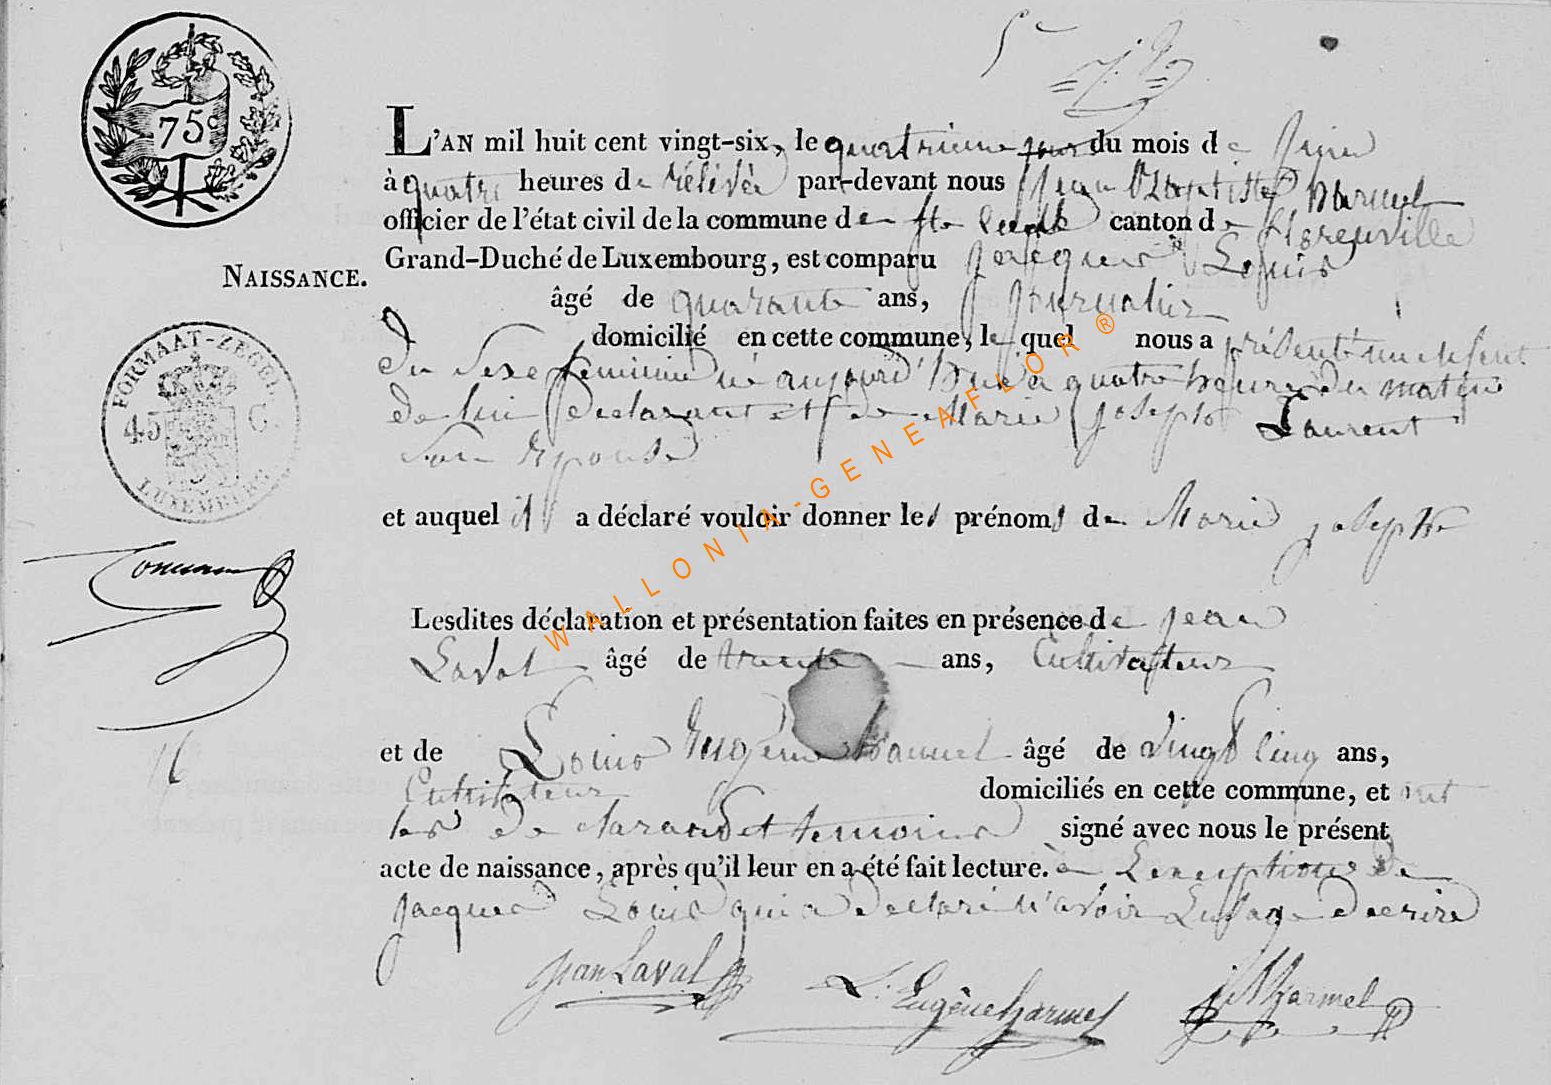 5e
75c
L'AN mil huit cent vingt-six, le quatrieme jour du mois de juin
à quatre heures de rélévée par-devant nous Jean Baptiste harmel
officier de l'état civil de la commune de Ste Cecile canton de florenville
Grand-Duché de Luxembourg, est comparu jacques Louis
NAISSANCE.
âgé de quarante ans, journalier
domicilié en cette commune, lequel nous a présenté un enfant
du sexe feminin né aujourd'hui a quatre heures du matin
de lui déclarant et de Marie josephe Laurent
Son Epouse
FORMAAT-ZEGEL
45 C.
LUXEMBURG
et auquel il a déclaré vouloir donner les prénoms de Marie josephe
Lesdites déclaration et présentation faites en présence de jean
Laval âgé de trente ans, Cultivateur
et de Louis Eugène harmel âgé de vingt cinq ans,
Cultivateur domiciliés en cette commune, et ont
les declarant et temoins signé avec nous le présent
acte de naissance, après qu'il leur en a été fait lecture. à L'exception de
jacques Louis qui a declaré n'avoir L'usage d'ecrire
jean Laval L. Eugène harmel JB harmel
WALLONIA-GENEAFLOR®